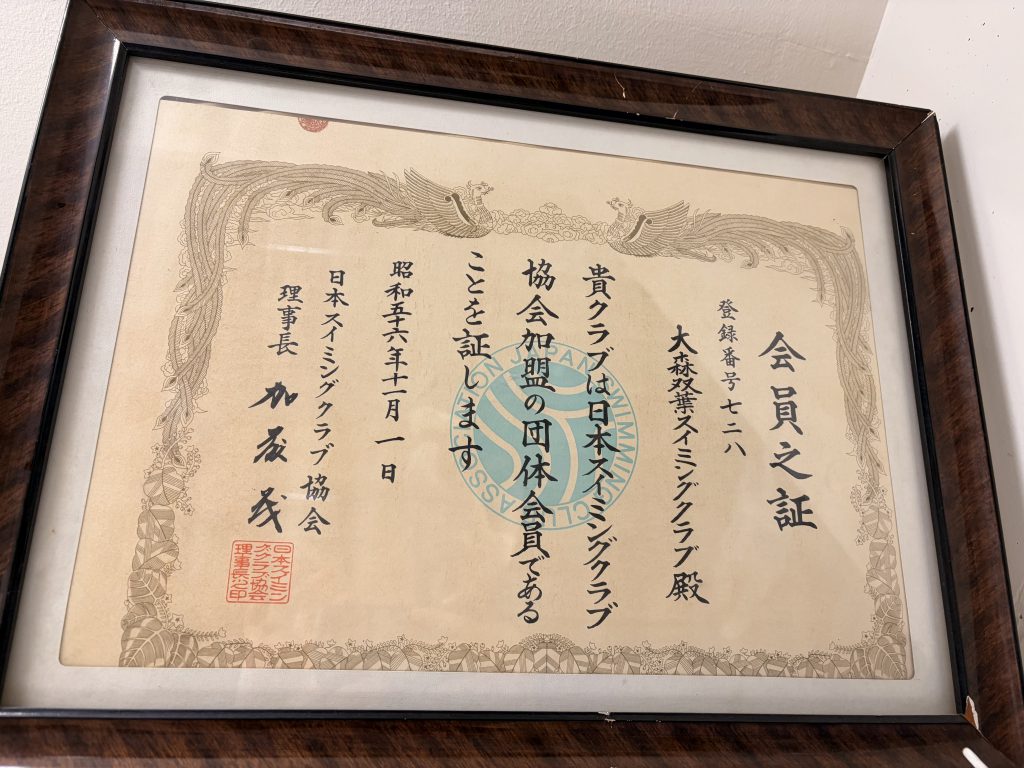 会員之証
登録番号 七二八
大森双葉スイミングクラブ殿
貴クラブは日本スイミングクラブ
協会加盟の団体会員である
ことを証します
昭和五十六年十一月一日
日本スイミングクラブ協会
理事長 加茂 茂
日本スイミン
グクラブ協会
理事長之印
JAPAN SWIMMING CLUB ASSOCIATION